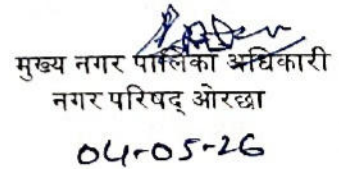 मुख्य नगर पालिका अधिकारी
नगर परिषद् ओरछा
04-05-26